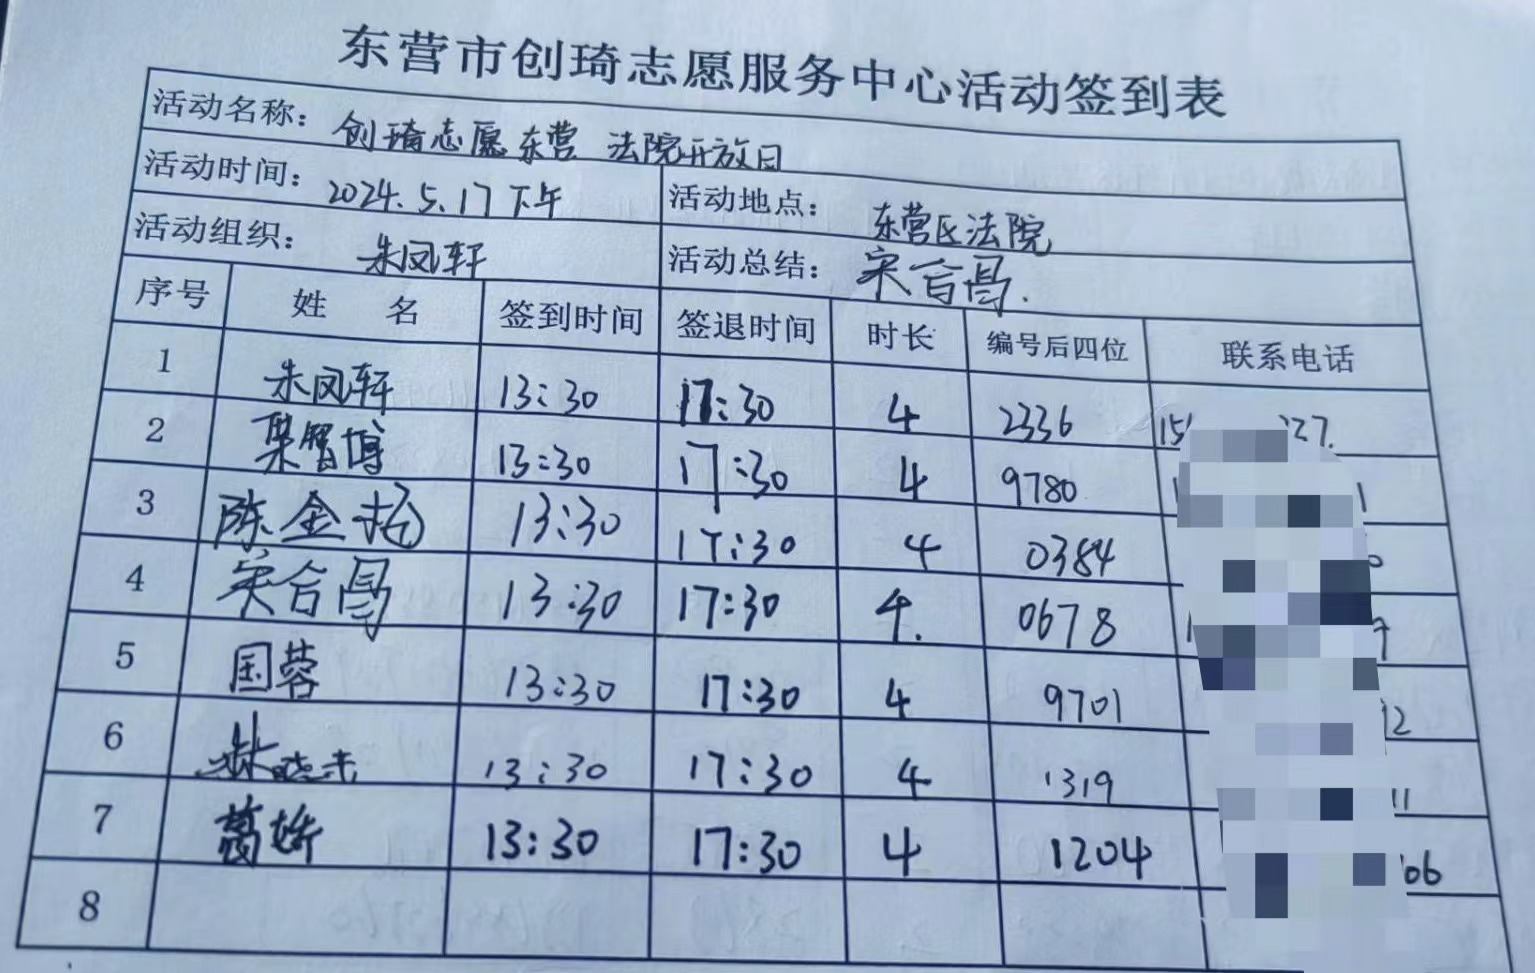 东营市创琦志愿服务中心活动签到表
活动名称: 创琦志愿东营 法院开放日
活动时间: 2024.5.17下午 活动地点: 东营区法院
活动组织: 朱凤轩 活动总结: 宋合昌.
序号 姓 名 签到时间 签退时间 时长 编号后四位 联系电话
1 朱凤轩 13:30 17:30 4 2336
2 智博 13:30 17:30 4 9780
3 陈金 13:30 17:30 4 0384
4 宋合昌 13:30 17:30 4. 0678
5 国蓉 13:30 17:30 4 9701
6 13:30 17:30 4 1319
7 葛娇 13:30 17:30 4 1204
8